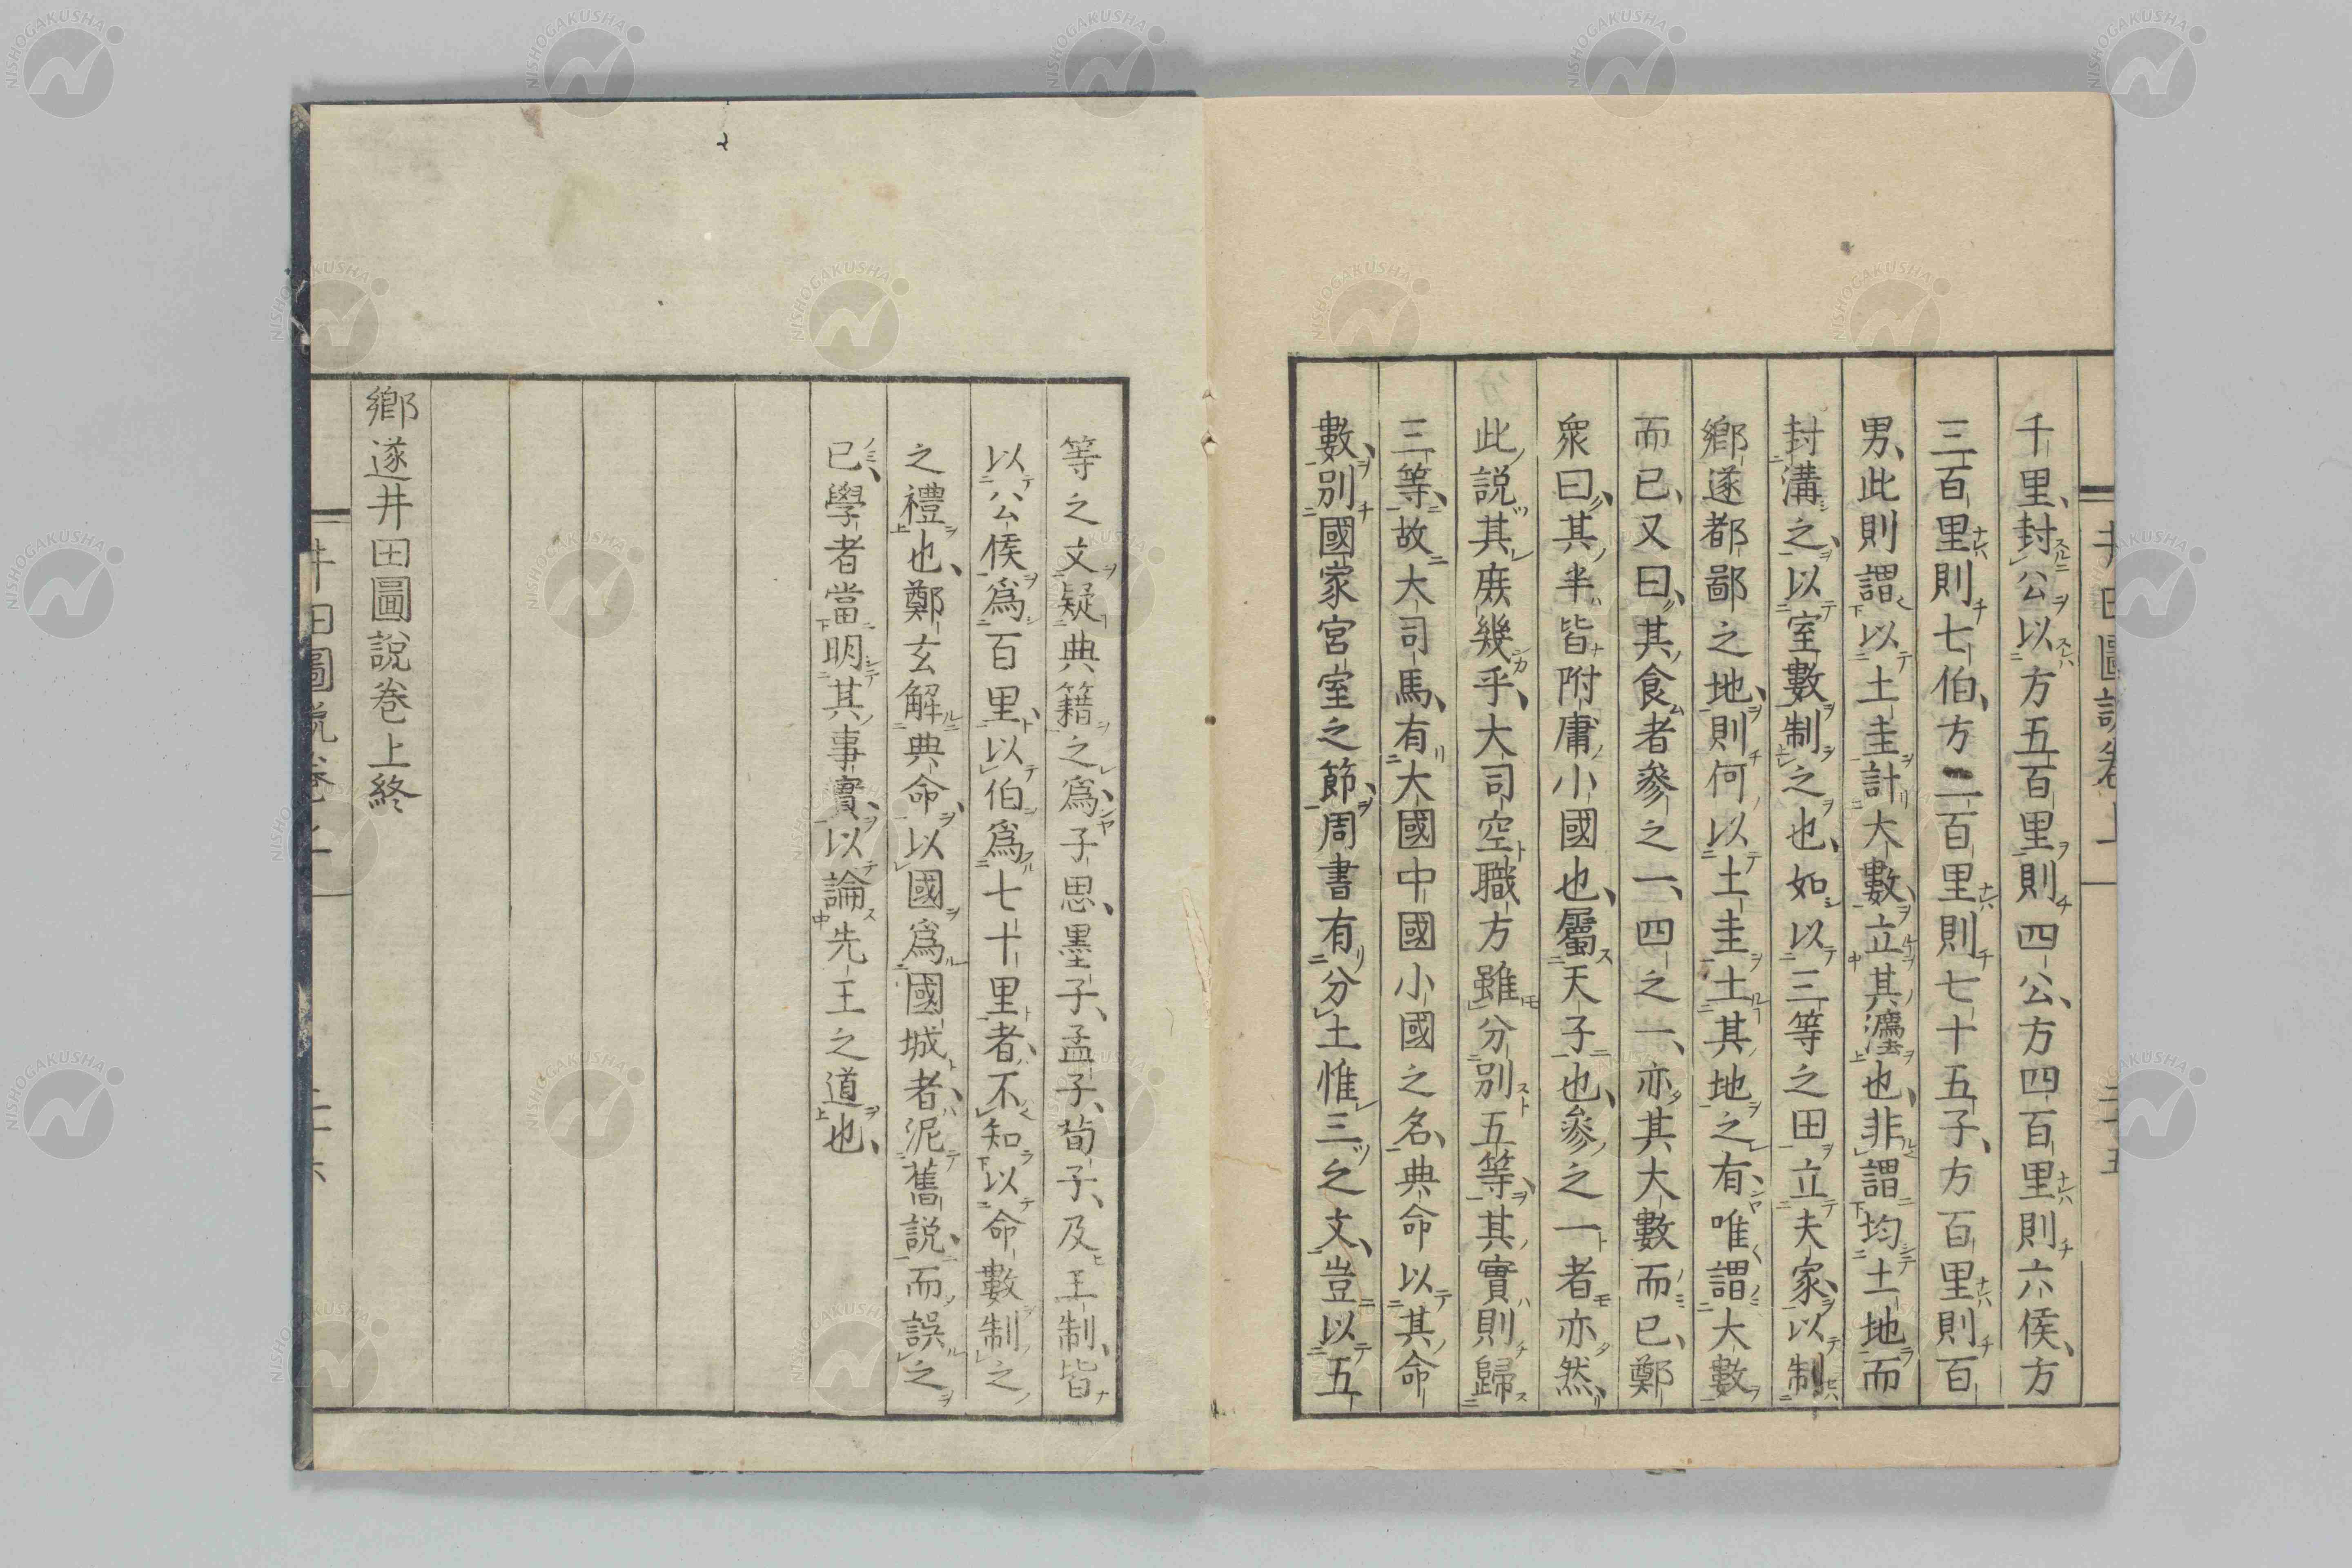 千里、封公以方五百里則四公、方四百里則六侯、方
三百里則七伯、方二百里則七十五子、方百里則百
男、此則謂以土圭計大數、立其灋也、非謂均土地而
封溝之、以室數制之也、如以三等之田立夫家、以制
鄉遂都鄙之地、則何以土圭土其地之有、唯謂大數
而已、又曰、其食者參之一、四之一、亦其大數而已、鄭
衆曰、其半皆附庸小國也、屬天子也、參之一者亦然、
此說其庶幾乎、大司空職方雖分別五等、其實則歸
三等、故大司馬、有大國中國小國之名、典命以其命
數、別國家宮室之節、周書有分土惟三之文、豈以五
等之文疑典籍之爲、子思、墨子、孟子、荀子、及王制、皆
以公侯爲百里、以伯爲七十里者、不知以命數制之
之禮也、鄭玄解典命、以國爲國城者、泥舊說、而誤之
已、學者當明其事實、以論先王之道也、
鄉遂井田圖說卷上終